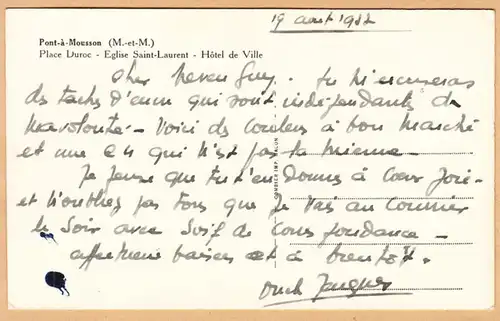 19 août 1952
Pont-à-Mousson (M.-et-M.)
Place Duroc - Eglise Saint-Laurent - Hôtel de Ville
Cher neveu Guy. Tu m'excuseras
des taches d'encre qui sont indépendantes de
ma volonté - Voici des couleurs à bon marché
et une qui n'est pas la mienne -
Je pense que tu t'en donnes à Cœur Joie -
et n'oublies pas tous que je vais au Courrier
le Soir avec Soif de Correspondance -
affectueux baisers et à bientôt.
Oncle Jacques
COMBIER IMP. MACON